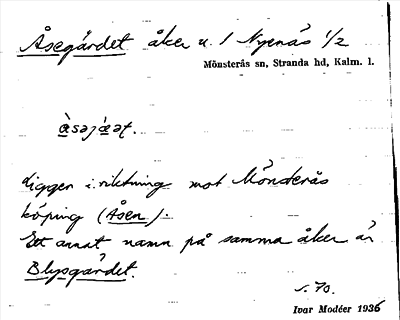 Åsegärdet åker u. 1 Nynäs 1/2
Mönsterås sn, Stranda hd, Kalm. l.
Ligger i riktning mot Mönsterås
köping (Åsen).
Ett annat namn på samma åker är
Blysgärdet.
s. 70.
Ivar Modéer 1936